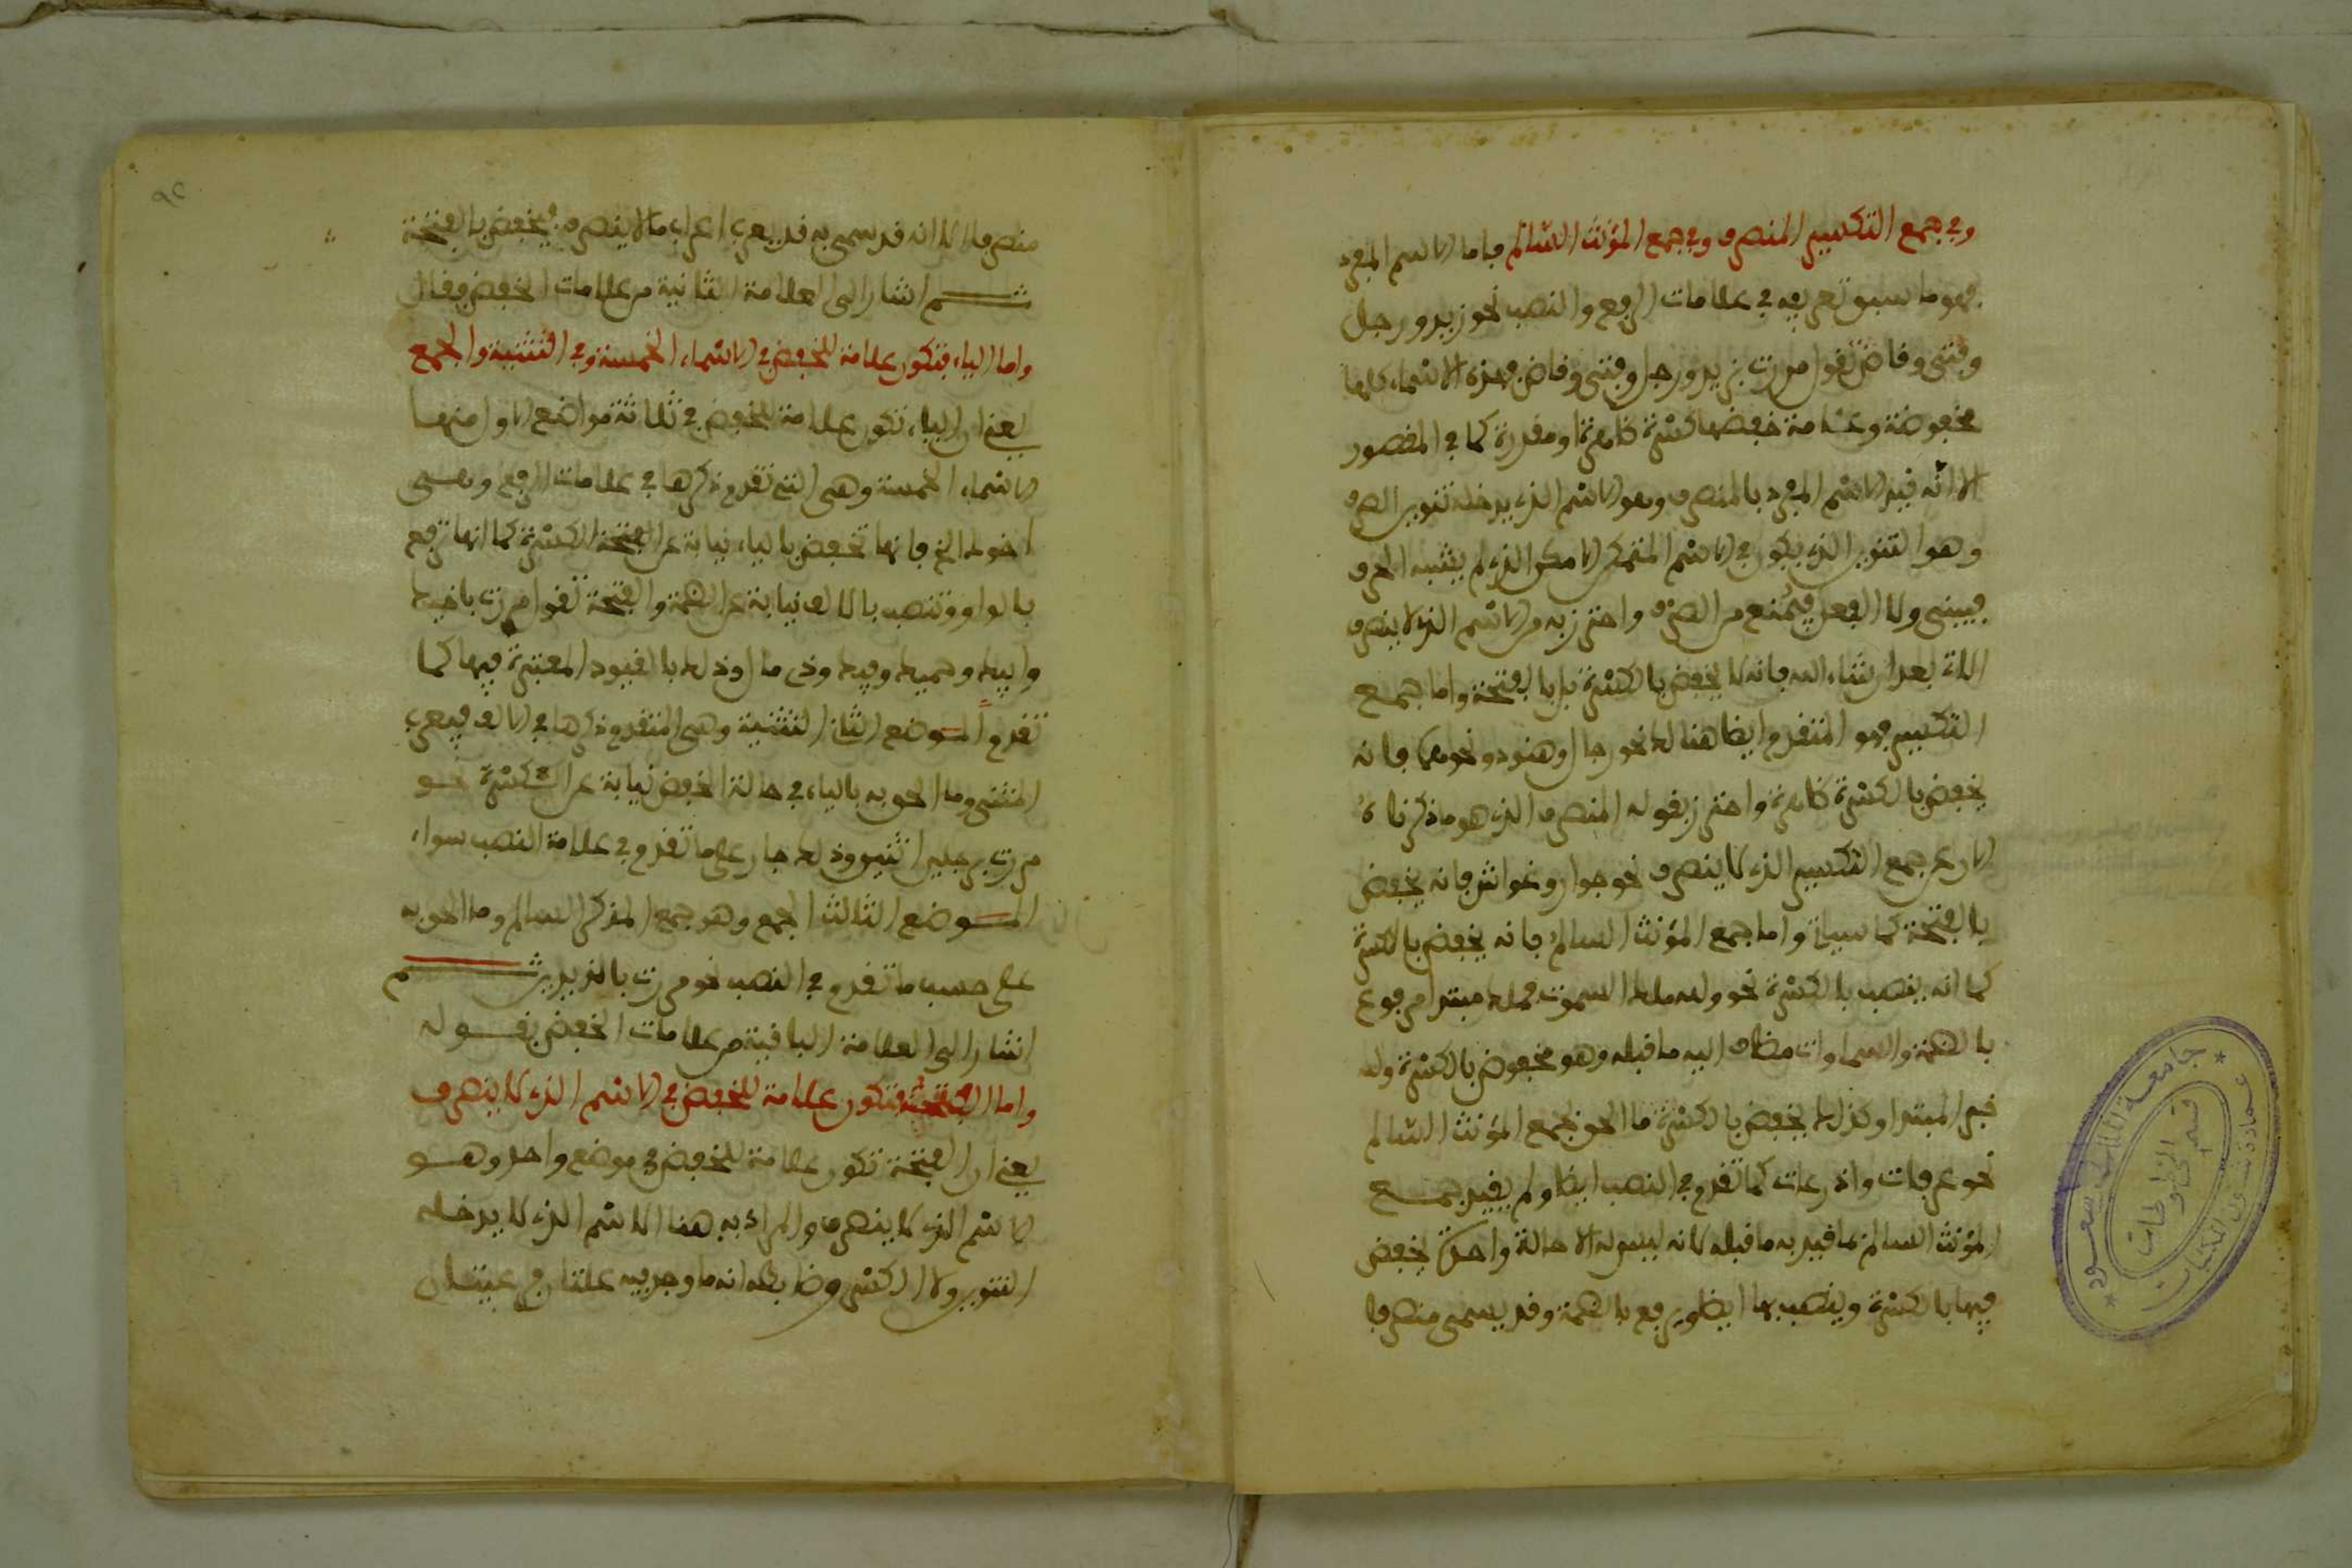 وفي جمع التكسير المنصرف وفي جمع المؤنث السّالم فاما الاسم المفرد
فهو ما سبق تعريفه في علامات الرفع والنصب نحو زيد ورجل
وفتى وقاض تقول مررت بزيد ورجل وفتى وقاض فهذه الاسماء كلها
مخفوضة وعلامة خفضها كسْرة ظاهرة او مقدرة كما في المقصور
الا انّه قيد الاسْم المفرد بالمنصرف وهو الاسْم الذي يدخله تنوين الصرف
وهو التنوين الذي يكون في الاسْم المتمكن الامكن الذي لم يشبه الحرف
فيبنى ولا الفعل فيُمْنع من الصرْف واحترز به من الاسْم الذي لا ينصرف
الاتي بعد ان شاء الله فانه لا يخفض بالكسْرة بل بالفتحة واما جمـع
التكسير فهو المتقدم ايضا هنالك نحو رجال وهنود ونحوهما فانه
يخفض بالكسْرة ظاهرة واحترز بقوله المنصرف الذي هو ما ذكرناه
الان عن جمع التكسير الذي لا ينصرف نحو جوار وغواش فانه يخفض
بالفتحة كما سياتي واما جمع المؤنث السالم فانه يخفض بالكسرة
كما انه ينصب بالكسْرة نحو ولله ملك السموت فملك مبتدا مرفوع
بالضمة والسماوات مضاف اليه ما قبله وهو مخفوض بالكسْرة ولله
خبر المبتدا وكذلك يخفض بالكسْرة ما الحق بجمع المؤنث السّالم
نحو عرفات واذرعات كما تقدم في النصب ايضا ولم يقيد جمـع
المؤنث السالم بما قيد به ما قبله لانه ليس له الا حالة واحدة يخفض
فيها بالكسْرة وينصب بها ايضا ويرفع بالضمة وقد يسمى منصرفا
منصرفا الا انه قد سمى به قد يعرب اعراب ما لا ينصرف فيخفض بالفتحة
ثـم اشار الى العلامة الثانية من علامات الخفض فقال
واما الياء فتكون علامة للخفض في الاسْماء الخمسة وفي التثنية والجمع
يعني ان الياء تكون علامة للخفض في ثلاثة مواضع الاول منهـا
الاسْماء الخمسة وهي التي تقدم ذكرها في علامات الرفع وهـي
اخوك الخ فانها تخفض بالياء نيابة عن الكسْرة كما انها ترفع
بالواو وتنصب بالالف نيابة عن الضمة والفتحة تقول مررت باخيك
وابيك وحميك وفيك وذي مال وذلك بالقيود المعتبرة فيها كما
تقدم المـوضع الثاني التثنية وهي المتقدم ذكرها في الالف فيعرب
المثنى وما الحق به بالياء في حالة الخفض نيابة عن الكسْرة نحـو
مررت برجلين اثنين وذلك جار على ما تقدم في علامة النصب سواء
المـوضع الثالث الجمع وهو جمع المذكر السالم وما الحق به
على حسب ما تقدم في النصب نحو مررت بالزيدين ثـم
اشار الى العلامة الباقية من علامات الخفض بقـوله
واما الفتحة فتكون علامة للخفض في الاسْم الذي لا ينصرف
يعني ان الفتحة تكون علامة للخفض في موضع واحد وهـو
الاسْم الذي لا ينصرف والمراد به هنا الاسْم الذي لا يدخله
التنوين ولا الكسْر وضابطه انه ما وجد فيه علتان فرعيتـان
جامعة الملك سعود
عمادة شؤون المكتبات
قسم المخطوطات